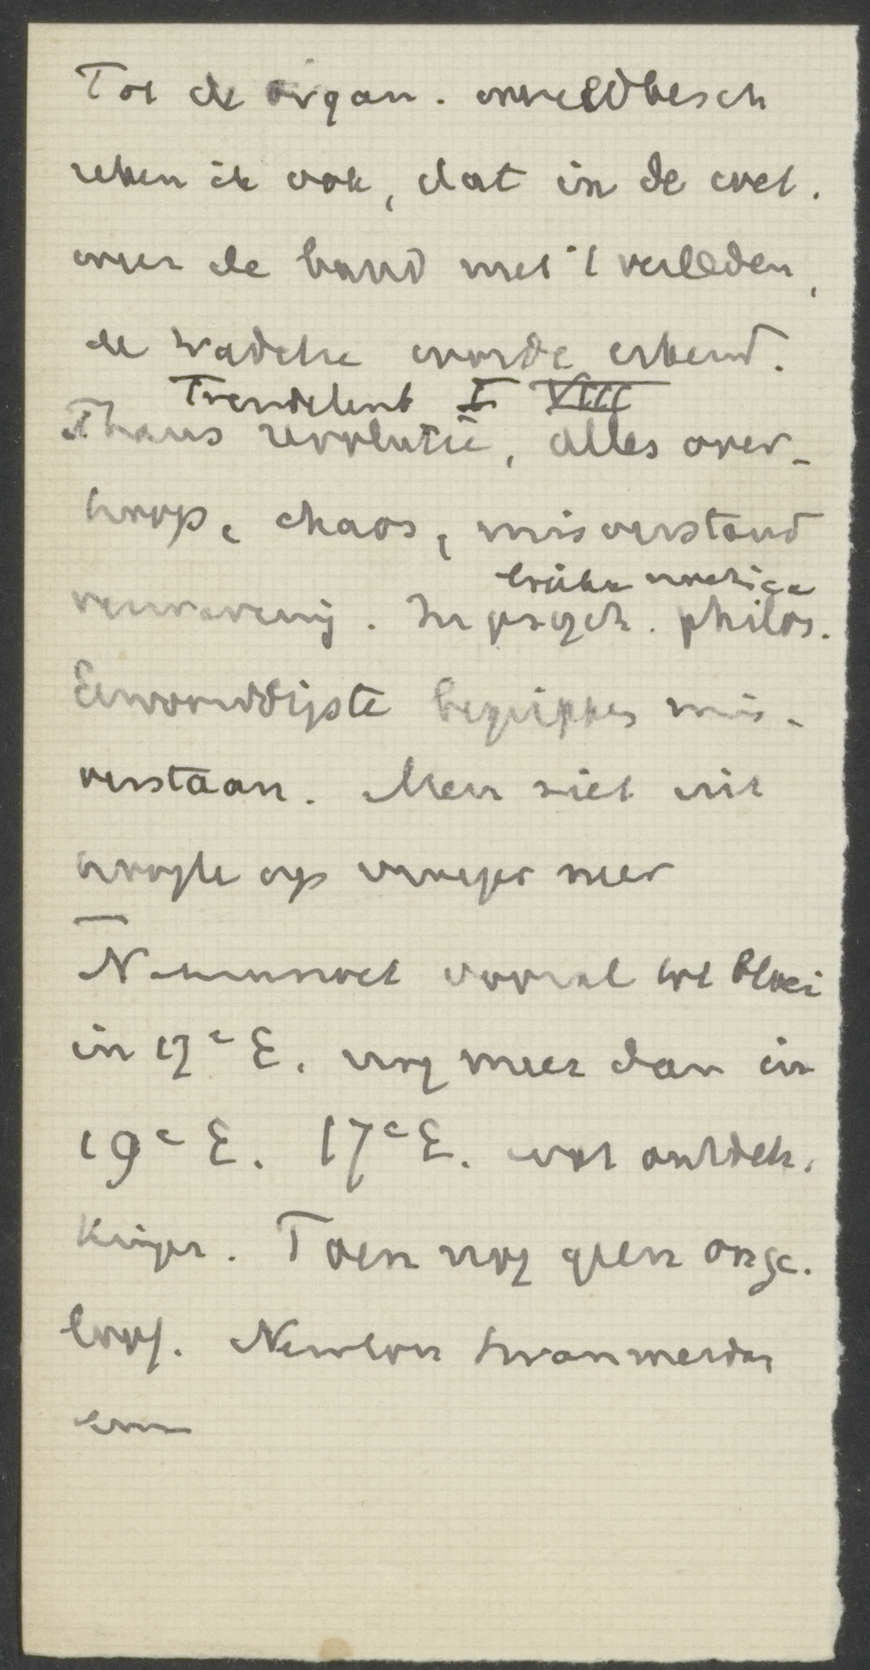 Tot de organ. wereldbesch
reken ik ook, dat in de wet.
weer de band met 't verleden,
de traditie worde erkend.
Trendelenb I VIII
Thans revolutie, alles over-
hoop, chaos, misverstand
verwarring. In psych. philos.
Eenvoudigste begrippen mis-
verstaan. Men ziet uit
hoogte op vroeger neer
Natuurwet vooral tot bloei
in 17e E. nog meer dan in
19e E. 17e E. wat ontdek-
kingen. Toen nog geen onge-
loof. Newton Swammerdam
enz